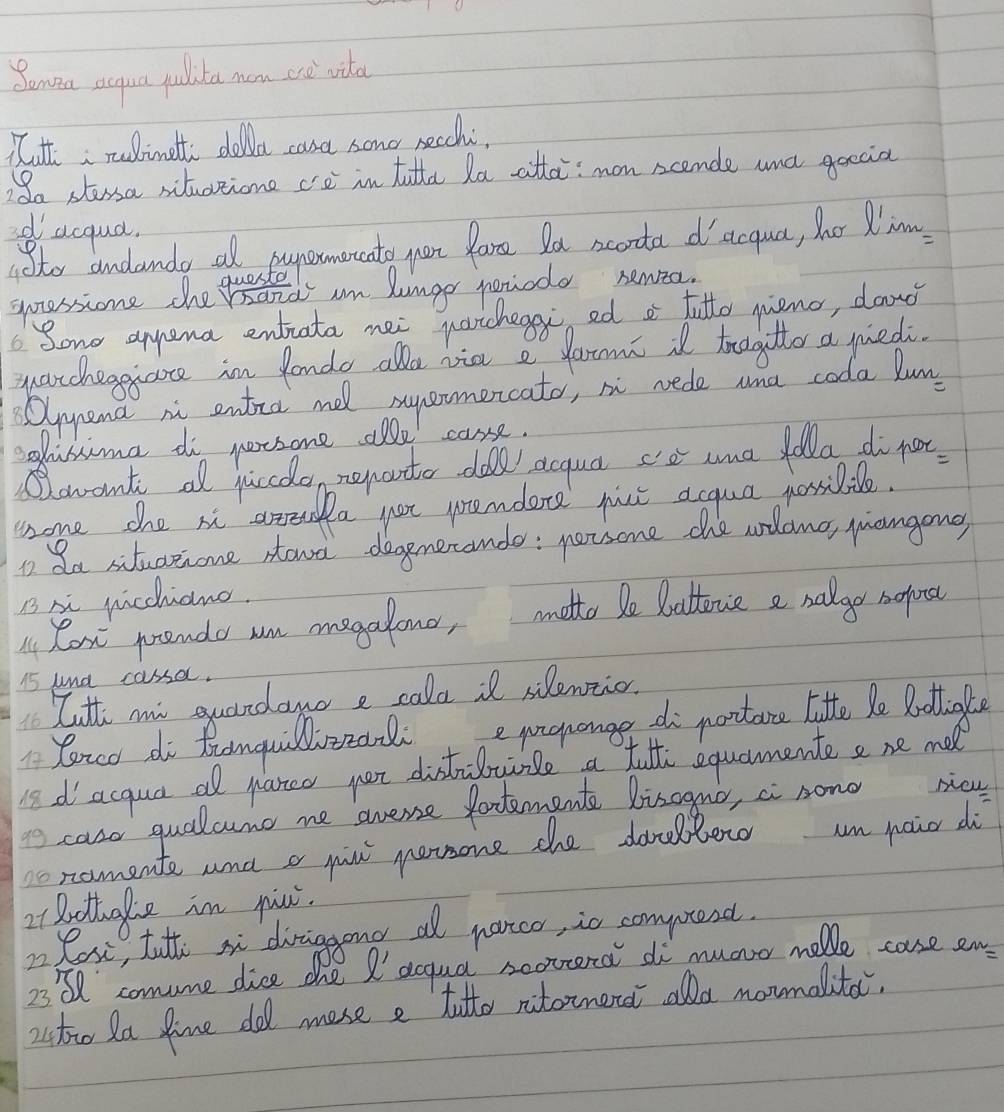 Senza acqua pulita non c'è vita
1 Tutti i rubinetti della casa sono secchi.
2 La stessa situazione c'è in tutta la città: non scende una goccia
3 d'acqua.
4 Sto andando al supermercato per fare la scorta d'acqua, ho l'im=
questo
5 pressione che sarà un lungo periodo senza.
6 Sono appena entrata nei parcheggi ed è tutto pieno, dovrò
7 parcheggiare in fondo alla via e farmi il tragitto a piedi.
8 Appena si entra nel supermercato, si vede una coda lun=
9 ghissima di persone alle casse.
10 Davanti al piccolo reparto dell'acqua c'è una folla di per=
11 sone che si azzuffa per prendere più acqua possibile.
12 La situazione stava degenerando: persone che urlano, piangono,
13 si picchiano.
14 Così prendo un megafono, metto le batterie e salgo sopra
15 una cassa.
16 Tutti mi guardano e cala il silenzio.
17 Cerco di tranquillizzarli e propongo di portare tutte le bottiglie
18 d'acqua al parco per distribuirle a tutti equamente e se nel
19 caso qualcuno ne avesse fortemente bisogno, ci sono sicu=
20 ramente una o più persone che darebbero un paio di
21 bottiglie in più.
22 Così, tutti si dirigono al parco, io compresa.
23 Il comune dice che l'acqua scorrerà di nuovo nelle case en=
24 tro la fine del mese e tutto ritornerà alla normalità.